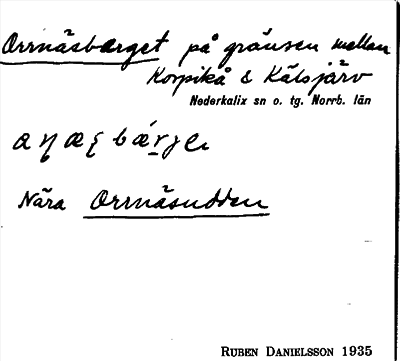 Orrnäsberget på gränsen mellan
Korpikå & Kälsjärv
Nederkalix sn o. tg. Norrb. län
Nära Orrnäsudden
RUBEN DANIELSSON 1935